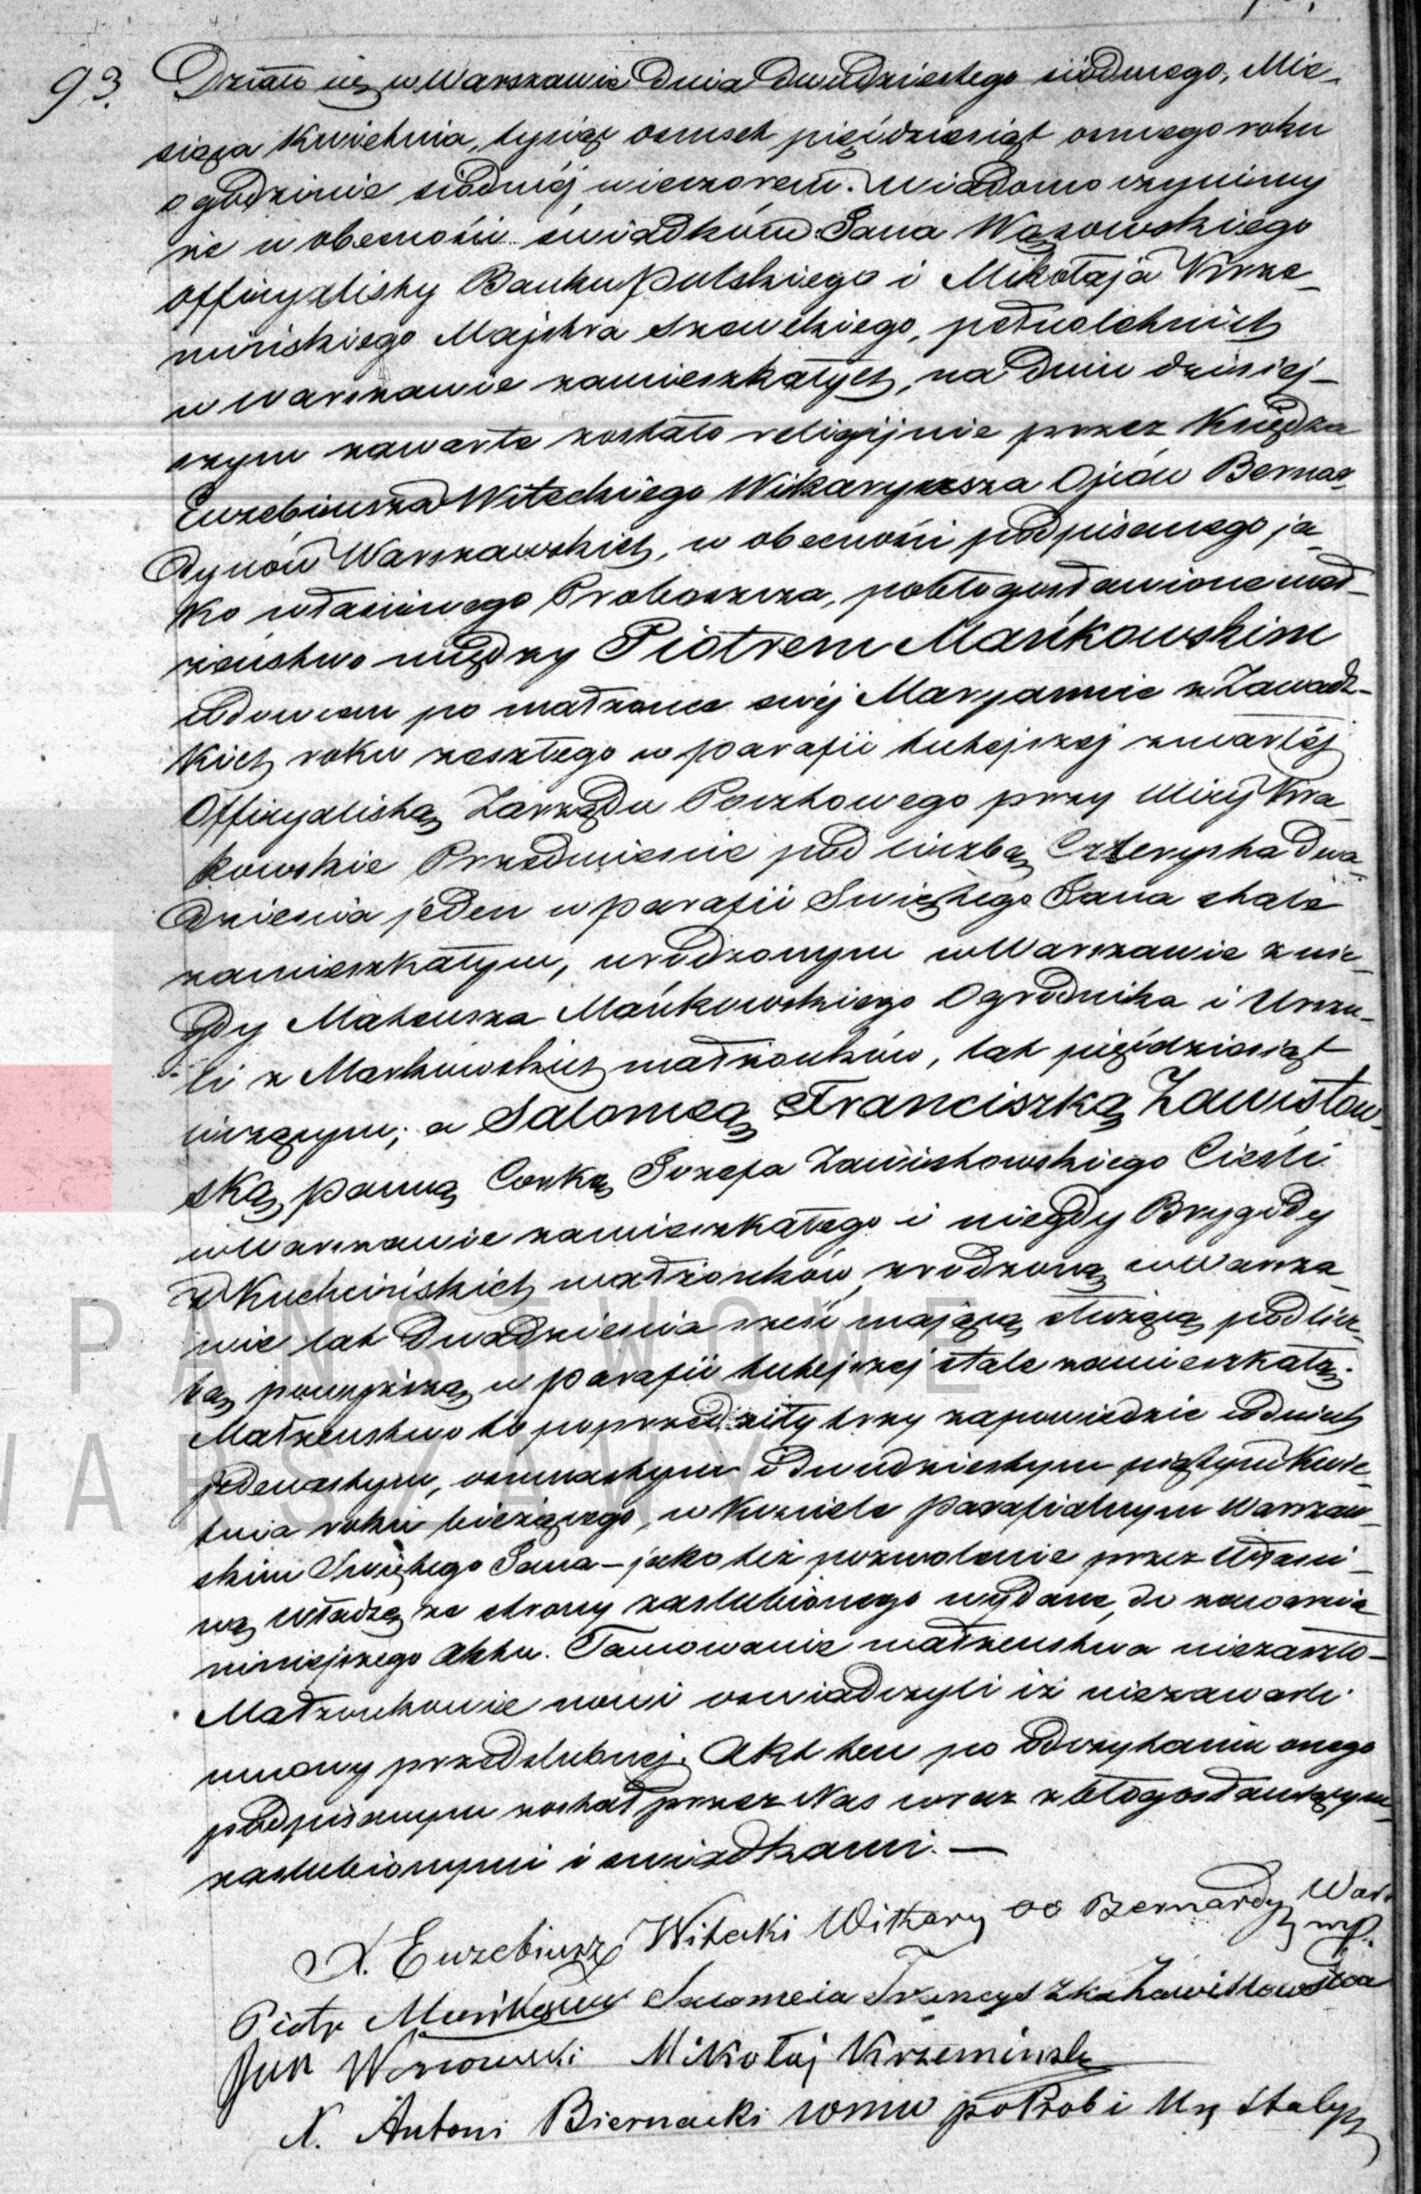 93. Działo się w Warszawie dnia dwudziestego siódmego, Mie-
siąca Kwietnia, tysiąc osmset pięćdziesiąt osmego roku
o godzinie siódmej wieczorem. Wiadomo czynimy
że w obecności świadków Jana Wąsowskiego
Officyalisty Banku Polskiego i Mikołaja Krze-
mińskiego Majstra Szewckiego, pełnoletnich
w Warszawie zamieszkałych, na dniu dzisiej-
szym zawarte zostało religijnie przez Księdza
Euzebiusza Witeckiego Wikaryusza Ojców Bernar-
dynów Warszawskich, w obecności podpisanego ja-
ko właściwego Proboszcza, pobłogosławione mał-
żeństwo między Piotrem Mańkowskim
wdowcem po małżonce swej Maryannie z Zawadz-
kich roku zeszłego w parafii tutejszej zmarłej
Officyalistą Zarządu Pocztowego przy ulicy Kra-
kowskie Przedmieście pod liczbą Czterysta dwa-
dzieścia jeden w parafii Świętego Jana stale
zamieszkałym, urodzonym w Warszawie z nie-
gdy Mateusza Mańkowskiego Ogrodnika i Urszu-
li z Markowskich małżonków, lat pięćdziesiąt
liczącym; a Salomeą Franciszką Zawistow-
ską panną Córką Józefa Zawistowskiego Cieśli
w Warszawie zamieszkałego i niegdy Brygidy
z Kucheińskich małżonków, zrodzoną w Warsza-
wie lat dwadzieścia sześć mającą służącą pod licz-
bą powyższą w parafii tutejszej stale zamieszkałą.
Małżeństwo to poprzedziły trzy zapowiedzie w dniach
jedenastym, osmnastym i dwudziestym piątym Kwie-
tnia roku bieżącego, w Kościele parafialnym Warszaw-
skim Świętego Jana – jako też pozwolenie przez właści-
wą władzę ze strony zaślubionego wydane, do zawarcia
niniejszego Aktu. Tamowanie małżeństwa niezaszło –
Małżonkowie nowi oświadczyli iż niezawarli
umowy przedślubnej. Akt ten po odczytaniu onego
podpisanym został przez Nas wraz z błogosławiącym
zaślubionymi i świadkami. —
X. Euzebiusz Witecki Wikary OO Bernardy Wars
mp.
Piotr Mańkowski Salomeia Francyszka Zawistowska
Jan Wąsowski Mikołaj Krzemiński
X. Antoni Biernacki